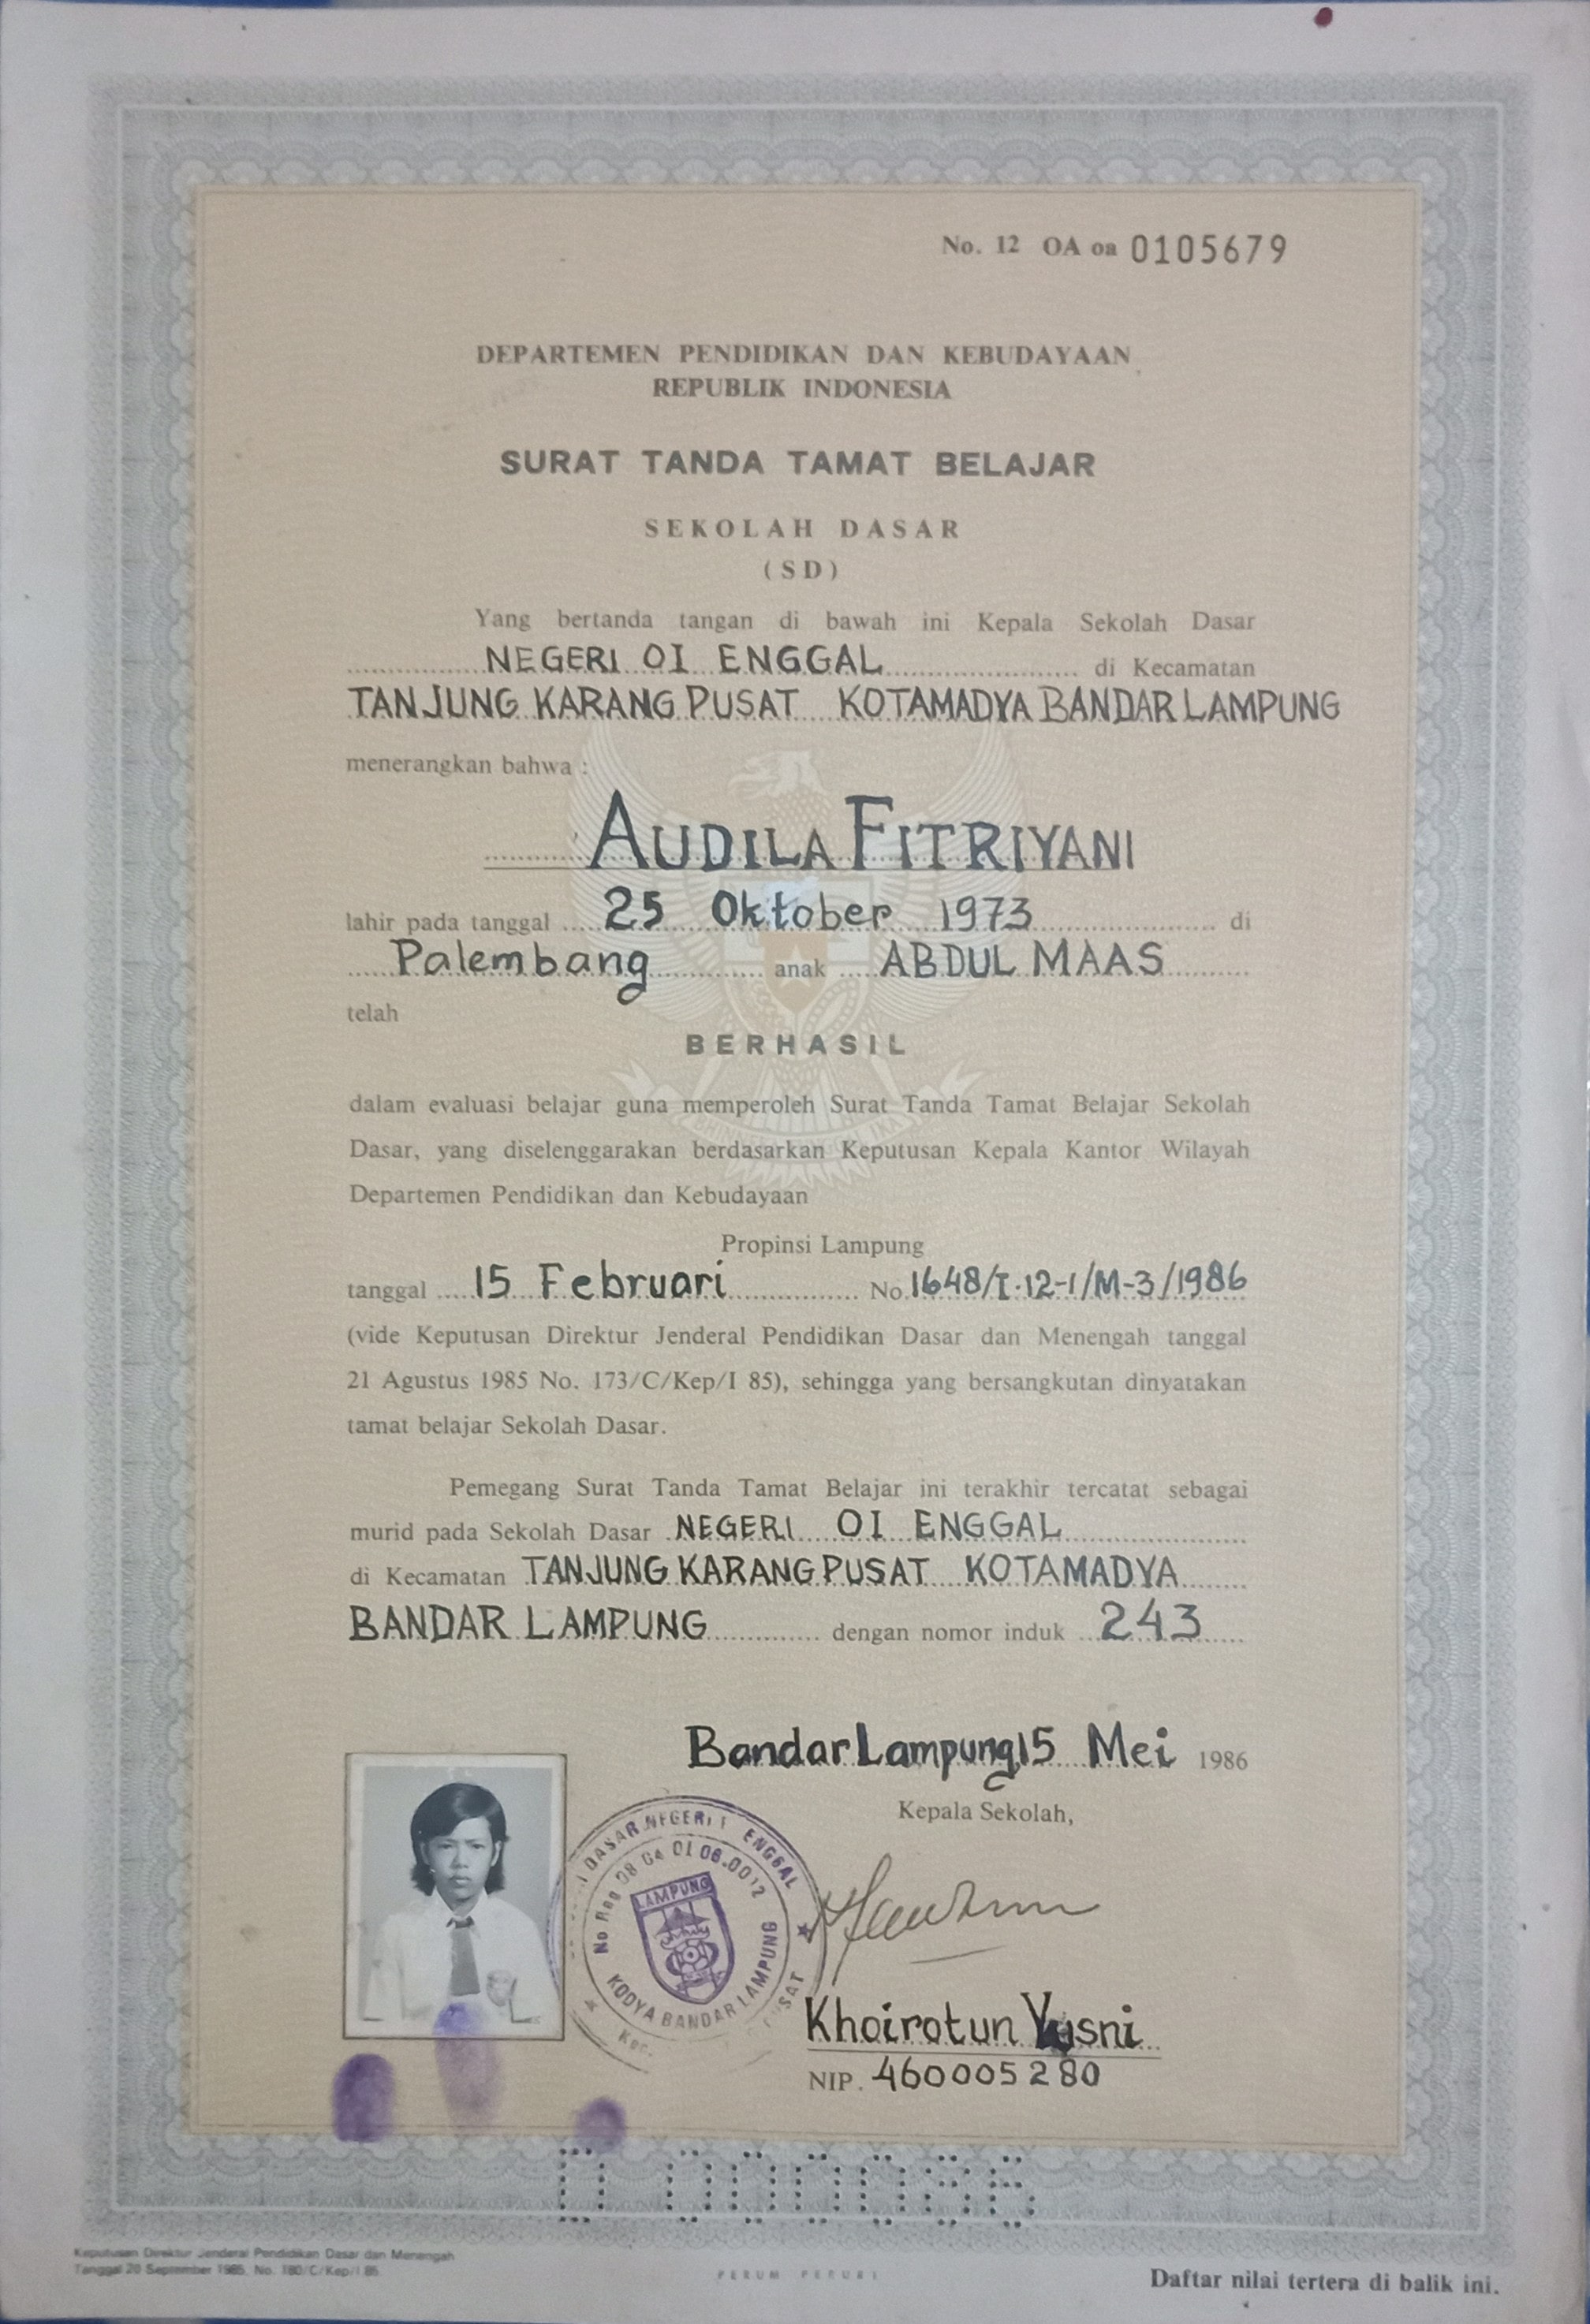 No. 12 OA oa 0105679
DEPARTEMEN PENDIDIKAN DAN KEBUDAYAAN
REPUBLIK INDONESIA
SURAT TANDA TAMAT BELAJAR
SEKOLAH DASAR
(SD)
Yang bertanda tangan di bawah ini Kepala Sekolah Dasar
NEGERI 01 ENGGAL di Kecamatan
TANJUNG KARANG PUSAT KOTAMADYA BANDAR LAMPUNG
menerangkan bahwa :
AUDILA FITRIYANI
lahir pada tanggal 25 Oktober 1973 di
Palembang anak ABDUL MAAS
telah
BERHASIL
dalam evaluasi belajar guna memperoleh Surat Tanda Tamat Belajar Sekolah
Dasar, yang diselenggarakan berdasarkan Keputusan Kepala Kantor Wilayah
Departemen Pendidikan dan Kebudayaan
Propinsi Lampung
tanggal 15 Februari No. 1648/I.12-1/M-3/1986
(vide Keputusan Direktur Jenderal Pendidikan Dasar dan Menengah tanggal
21 Agustus 1985 No. 173/C/Kep/I 85), sehingga yang bersangkutan dinyatakan
tamat belajar Sekolah Dasar.
Pemegang Surat Tanda Tamat Belajar ini terakhir tercatat sebagai
murid pada Sekolah Dasar NEGERI 01 ENGGAL
di Kecamatan TANJUNG KARANG PUSAT KOTAMADYA
BANDAR LAMPUNG dengan nomor induk 243
Bandar Lampung, 15 Mei 1986
Kepala Sekolah,
DASAR NEGERI 1 ENGGAL
No Reg 08 04 01 06.0012
LAMPUNG
KODYA BANDAR LAMPUNG
Kec.
Khoirotun Yusni
NIP. 460005280
Keputusan Direktur Jenderal Pendidikan Dasar dan Menengah
Tanggal 20 September 1985, No. 180/C/Kep/I 85.
PERUM PERURI
Daftar nilai tertera di balik ini.